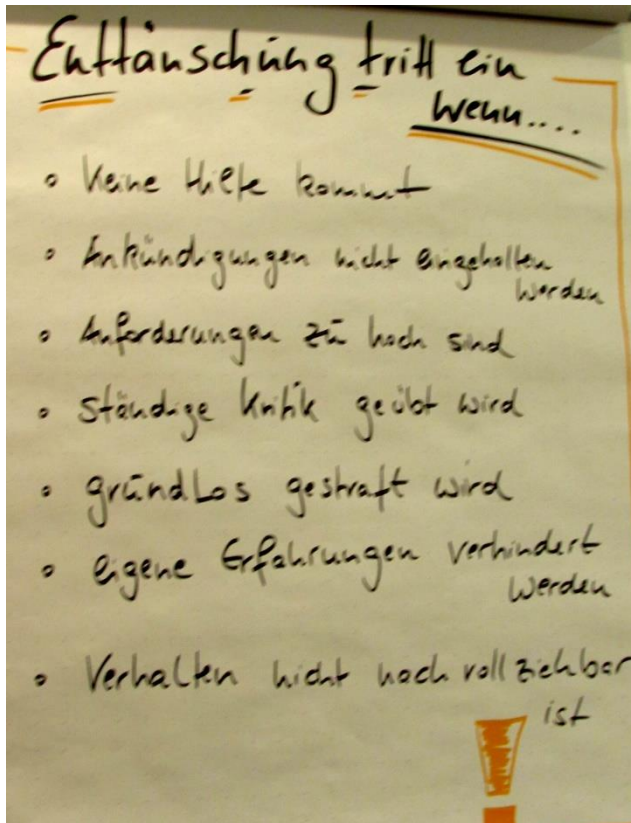 Enttäuschung tritt ein
wenn....
• Keine Hilfe kommt
• Ankündigungen nicht eingehalten
werden
• Anforderungen zu hoch sind
• ständige Kritik geübt wird
• grundlos gestraft wird
• eigene Erfahrungen verhindert
werden
• Verhalten nicht nachvollziehbar
ist